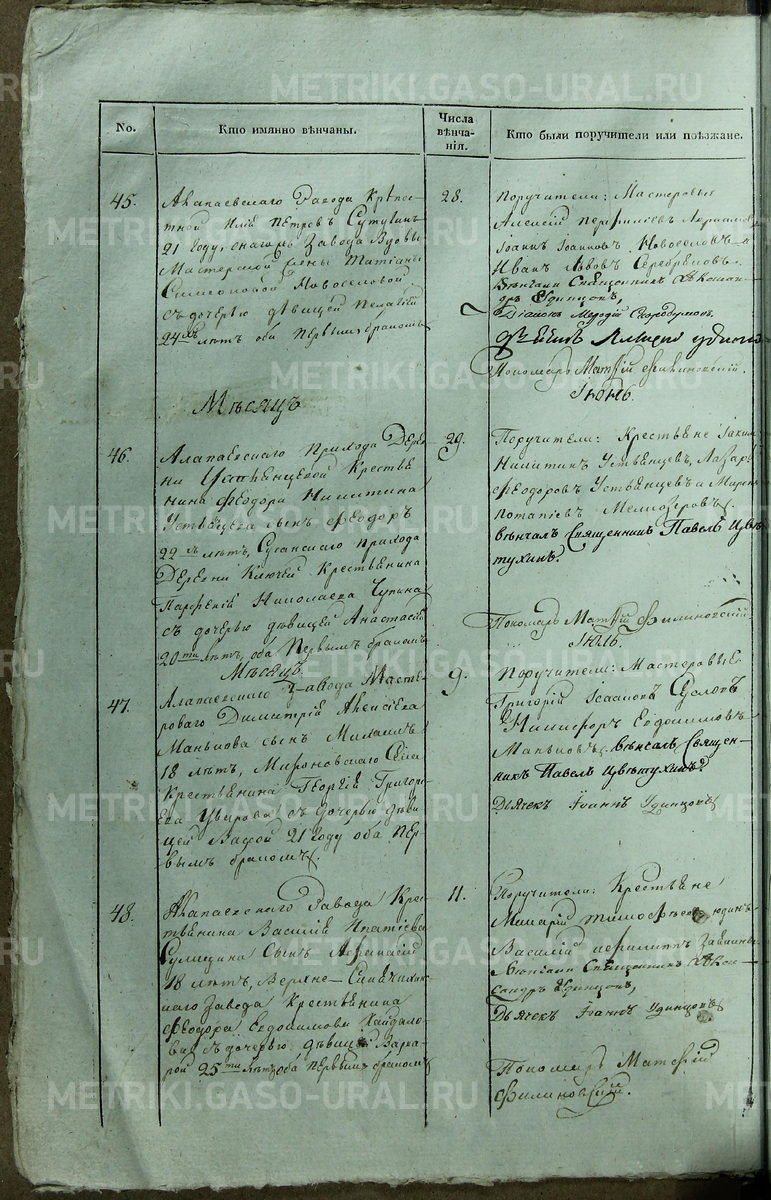 No.
Кто имянно вѣнчаны.
Числа
вѣнча-
нія.
Кто были поручители или поѣзжане.
45.
Алапаевскаго Завода Крѣпос-
тной Илія Петровъ Сутягинъ
21 году, онагожъ Завода Вдовы
Мастерской жены Татіаны
Симеоновой Новоселовой
съ дочерью дѣвицей Пелагіей
24хъ лѣтъ оба первымъ бракомъ
28.
Поручители: Мастеровыя
Алексій Перфиліевъ
Іоаннъ Іоанновъ Новоселовъ и
Иванъ Львовъ Серебряковъ.
Вѣнчали Священникъ Алексан-
дръ Удинцовъ,
Діаконъ Меѳодій
Пономарь Матѳій Филиновскій.
Мѣсяцъ
Іюнь.
46.
Алапаевскаго Прихода Дерев-
ни Устьянцевой Крестья-
нина Ѳеодора Никитина
Устьянцева сынъ Ѳеодоръ
22хъ лѣтъ, Сусанскаго прихода
Деревни Ключей Крестьянина
Парфенія Николаева Чупина
съ дочерью дѣвицей Анастасіей
20ти лѣтъ, оба Первымъ бракомъ
29.
Поручители: Крестьяне Іакимъ
Никитинъ Устьянцевъ, Лазарь
Ѳеодоровъ Устьянцевъ и Миронъ
Потапіевъ Мелкозеровъ.
вѣнчалъ Священникъ Павелъ Цвѣ-
тухинъ.
Пономарь Матѳій Филиновскій
Мѣсяцъ
Іюль.
47.
Алапаевскаго Завода Масте-
роваго Димитрія Алексіева
Манькова сынъ Михаилъ
18 лѣтъ, Мироновскаго Села
Крестьянина Георгія Григорі-
ева Швырова съ дочерью дѣви-
цей Вассой 21 году оба пер-
вымъ бракомъ.
9.
Поручители: Мастеровые
Григорій Исааковъ Сусловъ
Никифоръ Евдокимовъ
Маньковъ. Вѣнчалъ Священ-
никъ Павелъ Цвѣтухинъ.
Дьячекъ Іоаннъ Удинцовъ
48.
Алапаевскаго Завода Крес-
тьянина Василія Ипатіева
Сулицина Сынъ Аѳанасій
18 лѣтъ, Верхне-Синячихин-
скаго Завода Крестьянина
Ѳеодора Евдокимова
съ дочерью дѣвицей Варва-
рой 25ти лѣтъ оба первымъ бракомъ
11.
Поручители: Крестьяне
Макарій Тимоѳеевъ
Василій
Вѣнчали Священникъ Алек-
сандръ Удинцовъ,
Дьячекъ Іоаннъ Удинцовъ
Пономарь Матѳій
Филиновскій.
METRIKI.GASO-URAL.RU